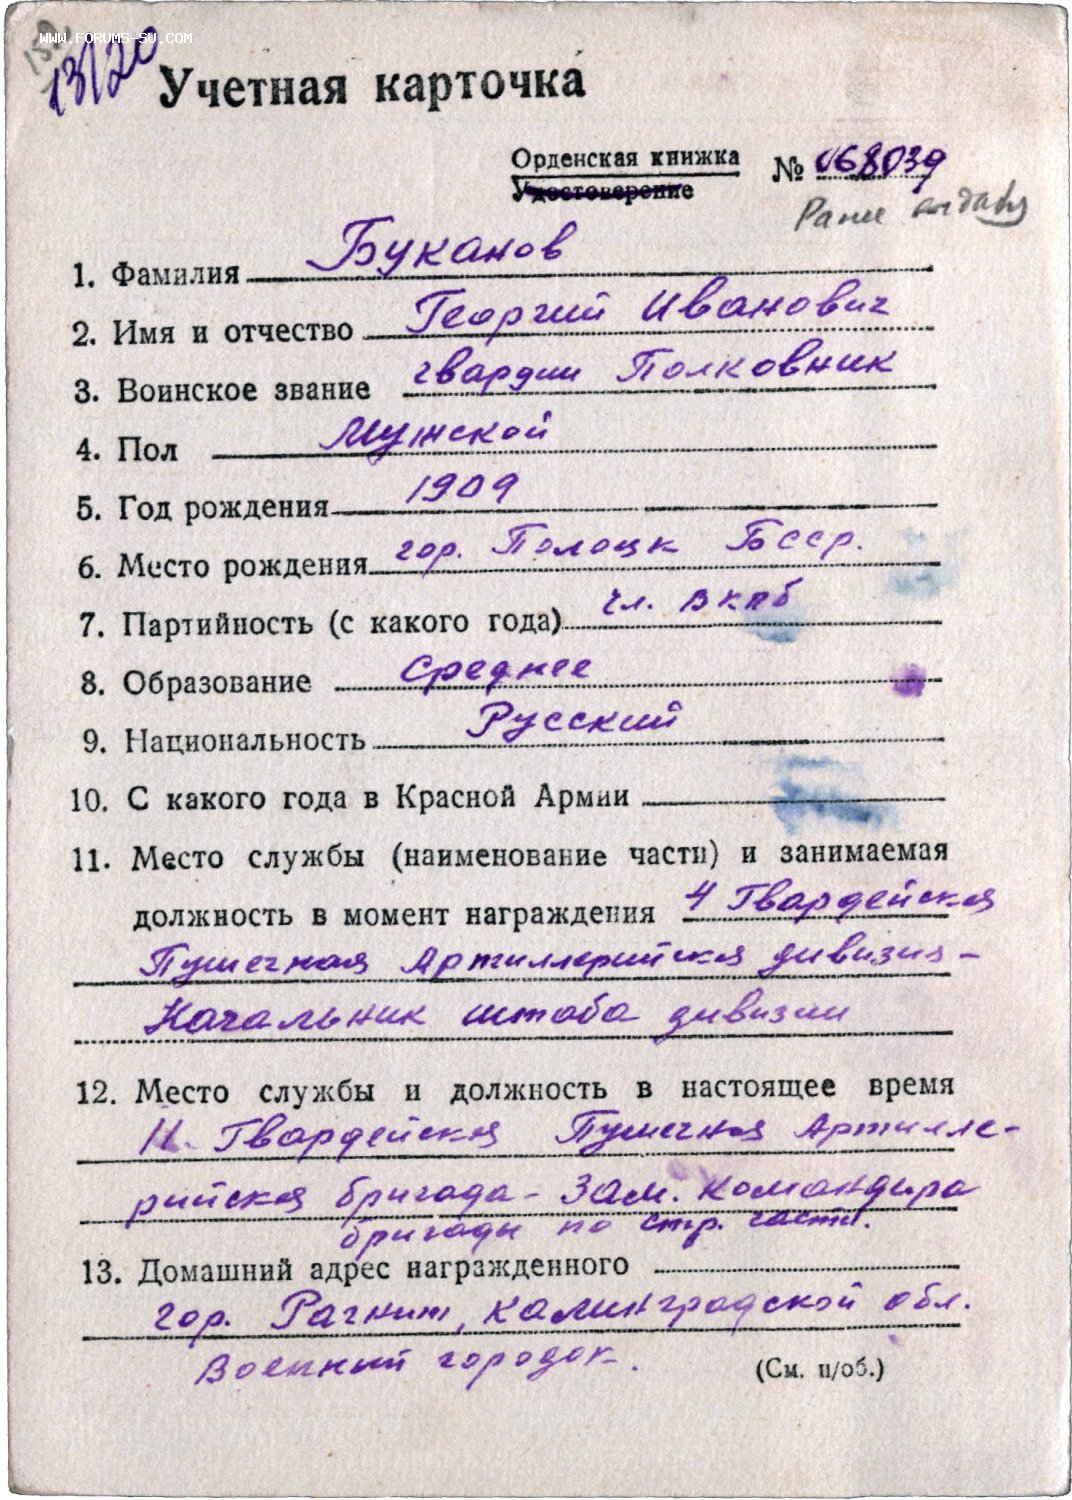 WWW.FORUMS-SU.COM
13/20
Учетная карточка
Орденская книжка
Удостоверение
№ 068039
Ранее
1. Фамилия Буканов
2. Имя и отчество Георгий Иванович
3. Воинское звание гвардии Полковник
4. Пол Мужской
5. Год рождения 1909
6. Место рождения гор. Полоцк БССР.
7. Партийность (с какого года) чл. ВКПб
8. Образование Среднее
9. Национальность Русский
10. С какого года в Красной Армии
11. Место службы (наименование части) и занимаемая
должность в момент награждения 4 Гвардейская
Пушечная Артиллерийская дивизия -
Начальник штаба дивизии
12. Место службы и должность в настоящее время
11. Гвардейская Пушечная Артилле-
рийская бригада - Зам. командира
бригады по стр. части.
13. Домашний адрес награжденного
гор. Рагнит, Калинградской обл.
Военный городок.
(См. н/об.)